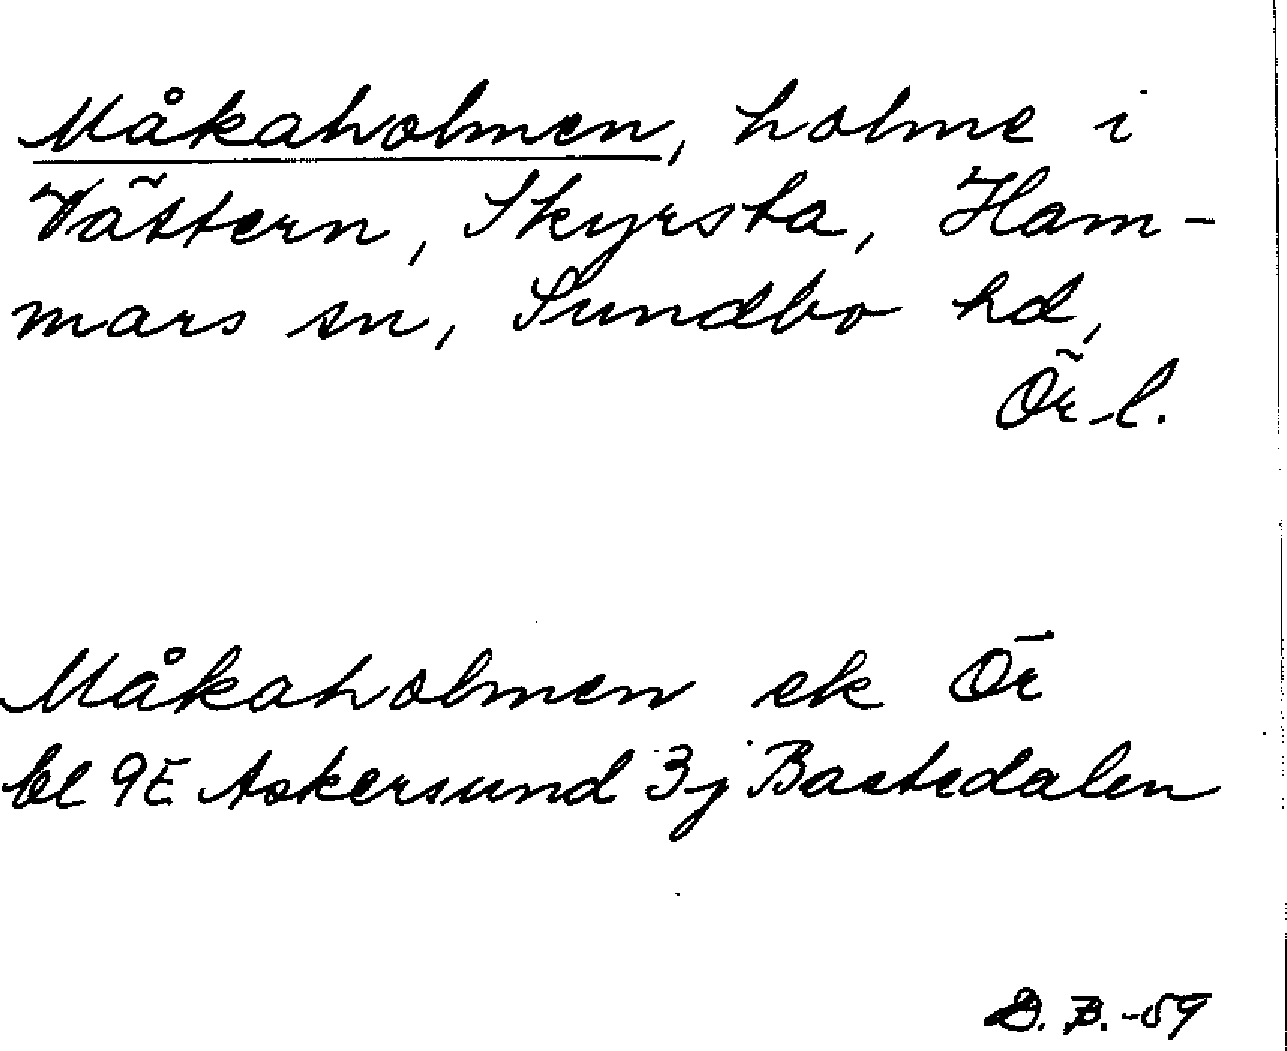 Måkaholmen, holme i
Vättern, Skyrsta, Ham-
mars sn, Sundbo hd,
Ör. l.
Måkaholmen ek Ör
bl 9E Askersund 3j Bastedalen
D. B. -59